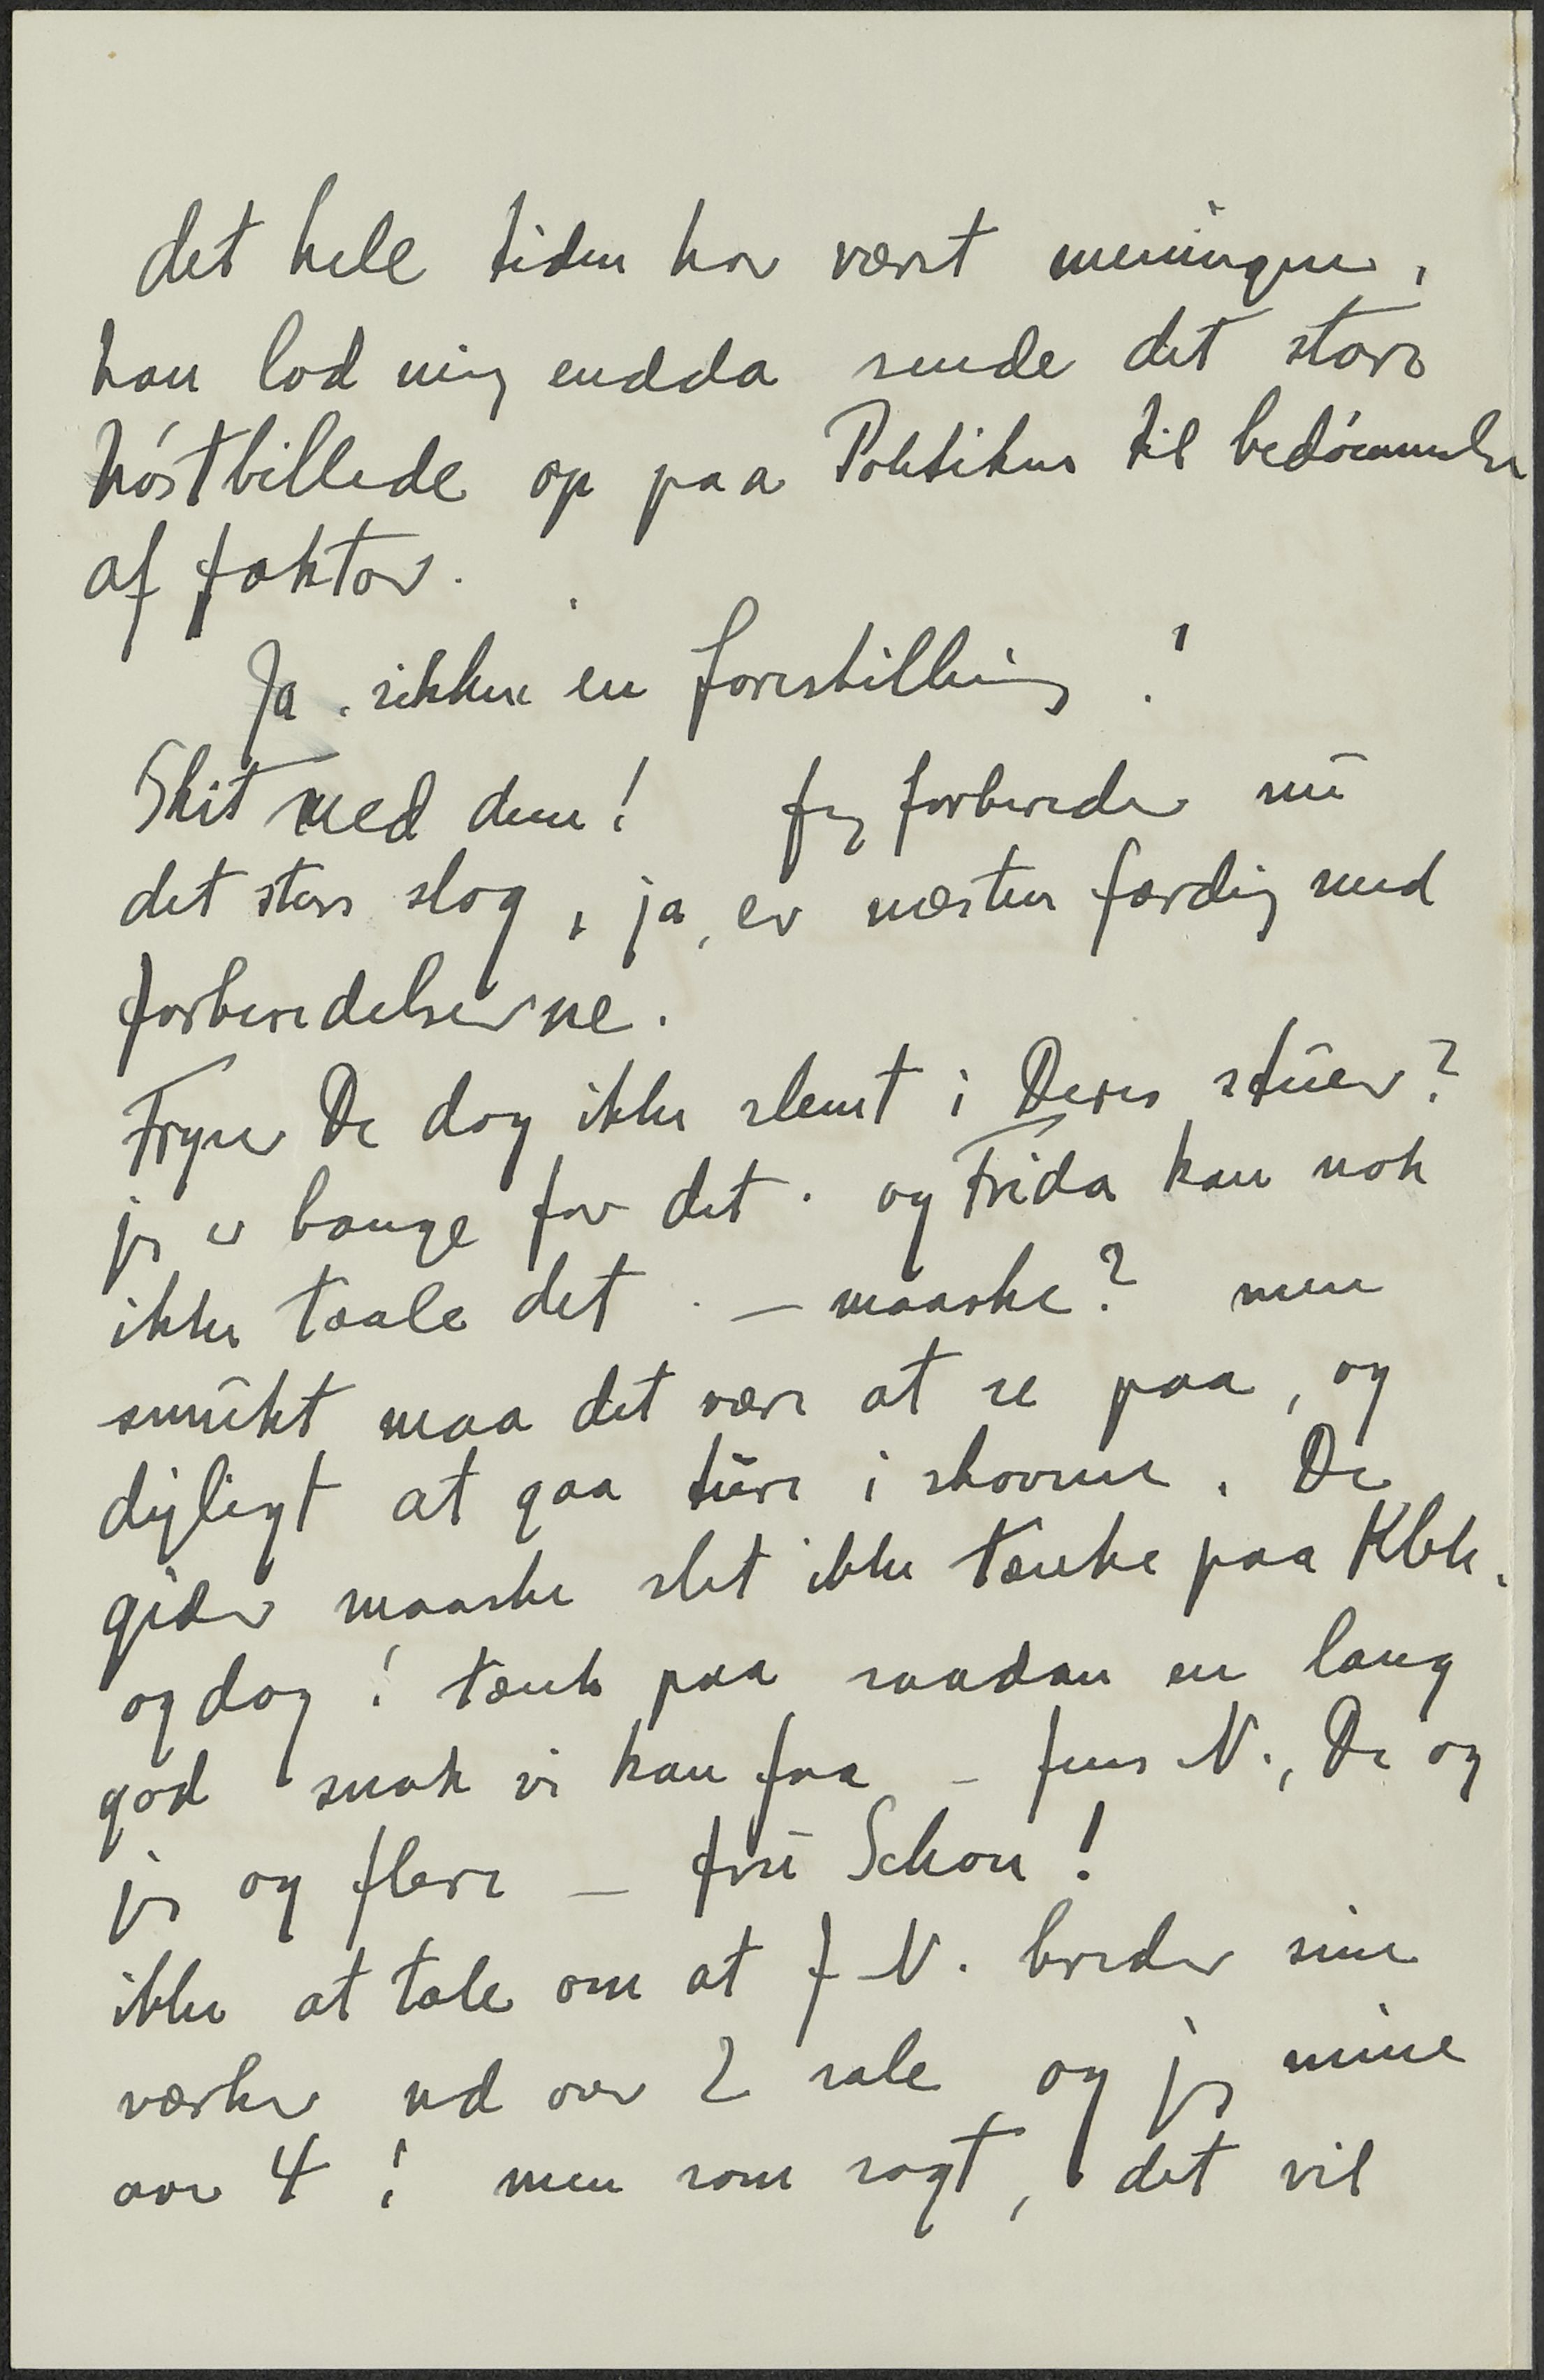 det hele tiden har været meningen,
han lod mig endda sende det store
høstbillede op paa Politiken til bedømmelse
af faktor.
Ja, sikken en forestilling!
Skit med dem! Jeg forbereder nū
det store slag, ja, er næsten færdig med
forberedelserne.
Fryser De dog ikke slemt i Deres stūer?
jeg er bange for det. og Frida kan nok
ikke taale det. – maaske? men
smūkt maa det være at se paa, og
dejligt at gaa tūre i skovene. De
gider maaske slet ikke tænke paa Kbh.
og dog! tænk paa saadan en lang
god snak vi kan faa – Jens N., De og
jeg og flere – frū Schou!
ikke at tale om at J. N. breder sine
værker ud over 2 sale og jeg mine
over 4! men som sagt, det vil